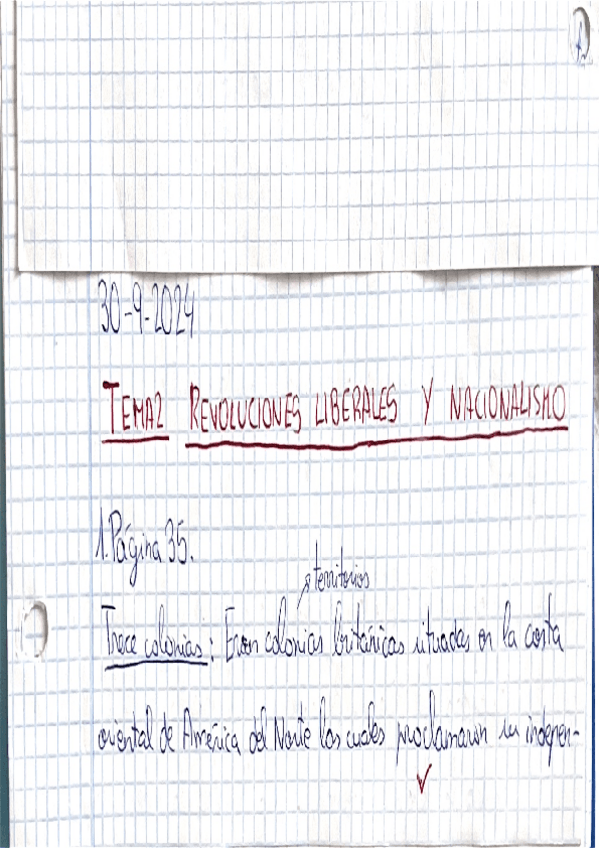 30-9-2024
TEMA2 REVOLUCIONES LIBERALES Y NACIONALISMO
1. Página 35.
territorios
Trece colonias: Eran colonias británicas situadas en la costa
oriental de América del Norte las cuales proclamaron su indepen-